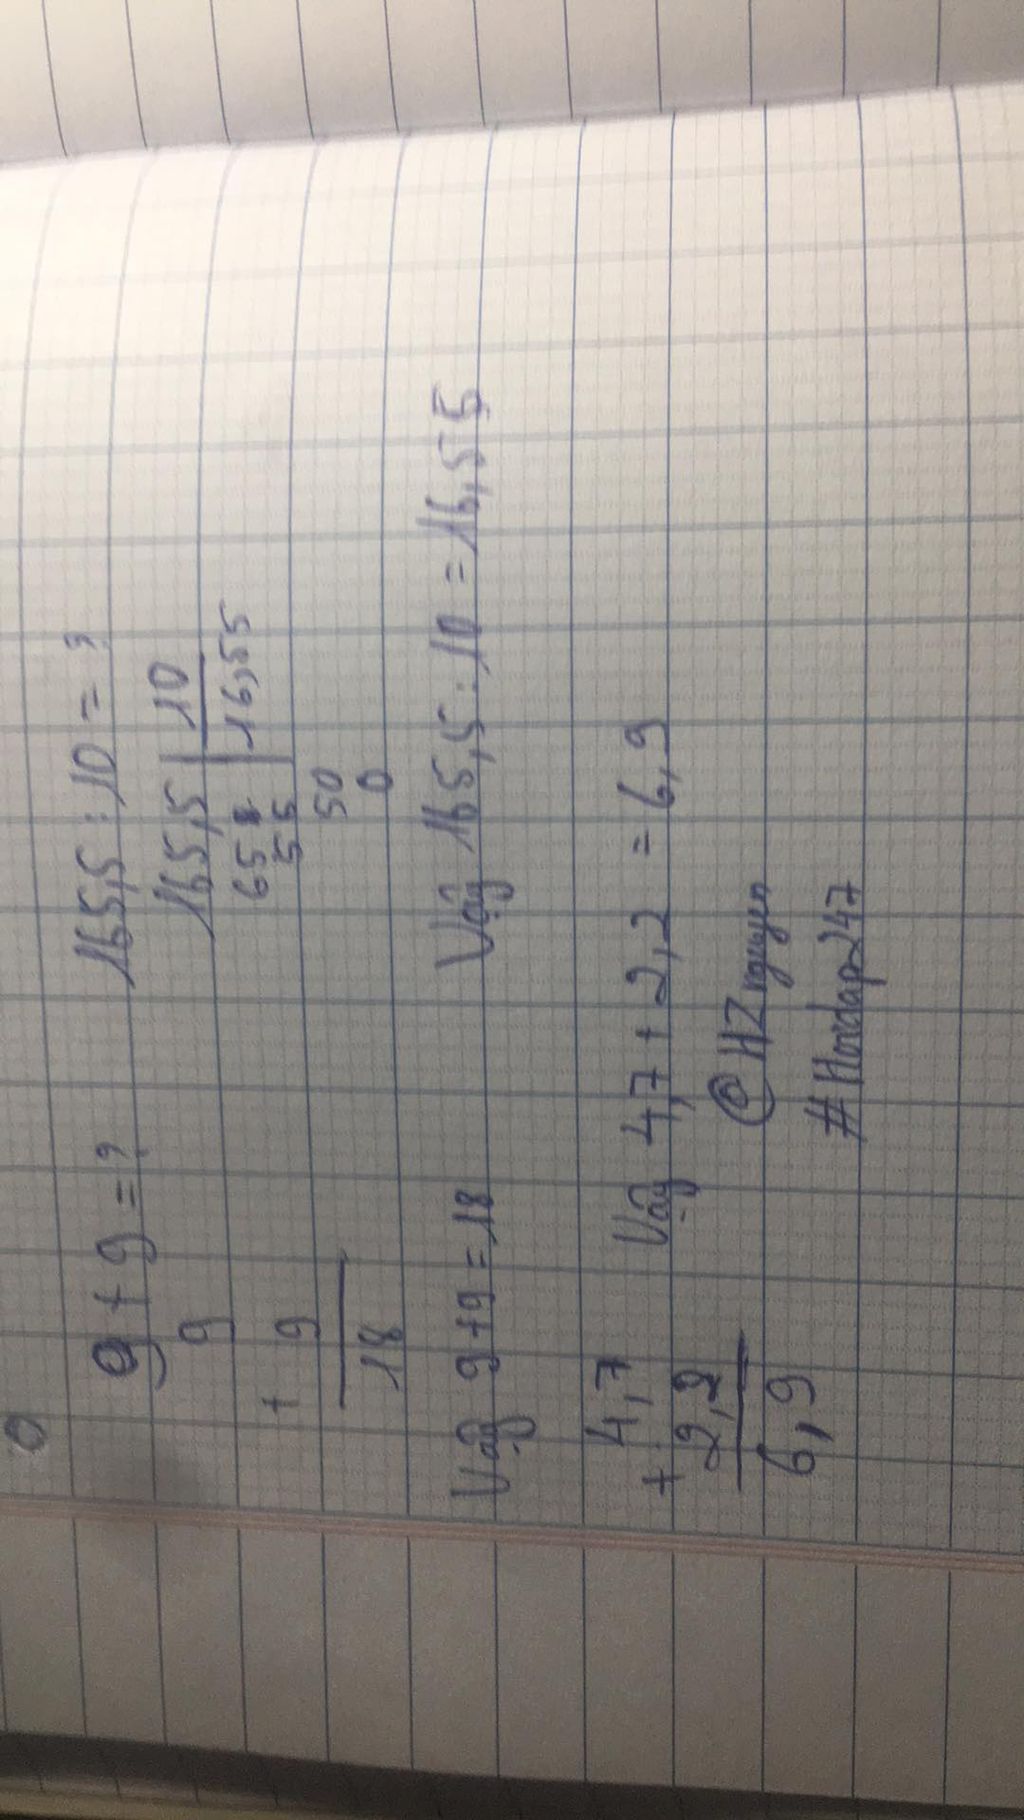 9 + 9 = ?
9
+ 9
18
Vậy 9+9 = 18
165,5 : 10 = ?
165,5 | 10
65 | 16,55
55
50
0
Vậy 165,5 : 10 = 16,55
4,7
+ 2,2
6,9
Vậy 4,7 + 2,2 = 6,9
@HZnguyen
#Hoidap247